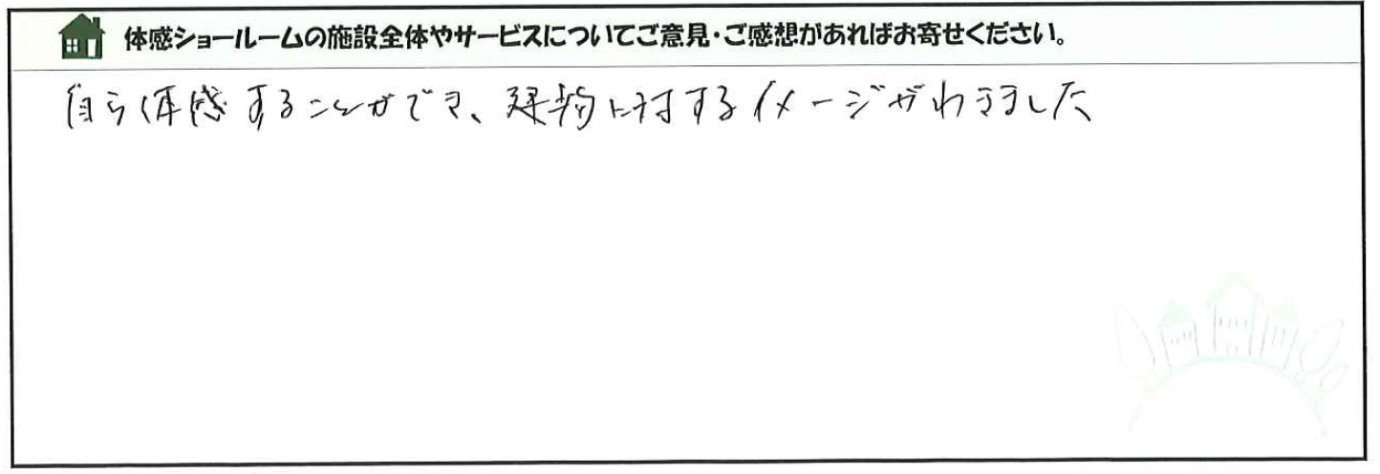 体感ショールームの施設全体やサービスについてご意見・ご感想があればお寄せください。
自ら体感することができ、建物に対するイメージがわきました